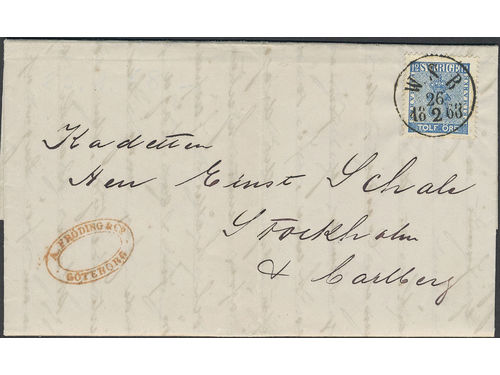 SVERIGE
TOLF ÖRE
W N B
26
18 2 63
Kadetten
Herr Ernst Schale
Stockholm
& Carlberg
A. FRÖDING & Co
GÖTEBORG